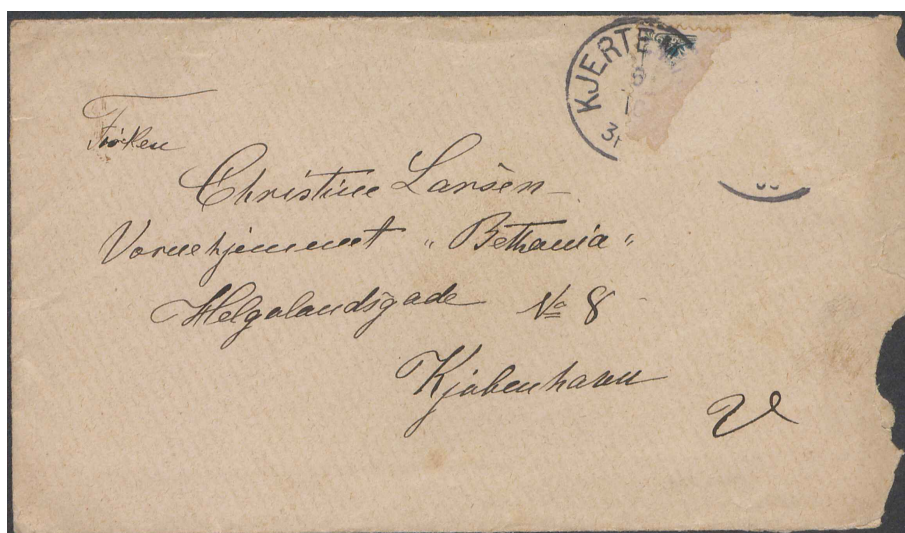 KJERTE
Frøken
Christine Larsen
Vornehjemmet „Bethania"
Helgolandsgade No 8
Kjøbenhavn
V